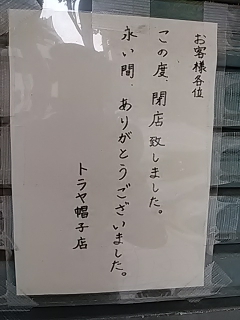 お客様各位
この度、閉店致しました。
永い間、ありがとうございました。
トラヤ帽子店